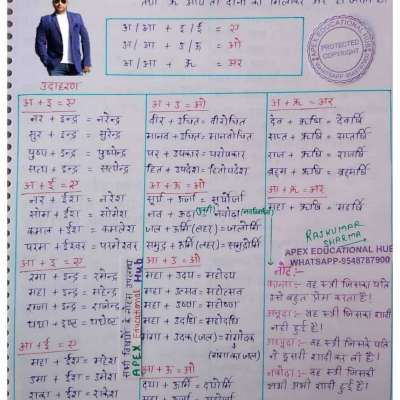 अ/आ + इ/ई = ए
अ/आ + उ/ऊ = ओ
अ/आ + ऋ = अर
APEX EDUCATIONAL HUB
PROTECTED
COPYRIGHT
उदाहरण
अ + इ = ए
नर + इन्द्र = नरेन्द्र
सुर + इन्द्र = सुरेन्द्र
पुष्प + इन्द्र = पुष्पेन्द्र
सत्य + इन्द्र = सत्येन्द्र
अ + ई = ए
नर + ईश = नरेश
सोम + ईश = सोमेश
कमल + ईश = कमलेश
परम + ईश्वर = परमेश्वर
आ + इ = ए
रमा + इन्द्र = रमेन्द्र
महा + इन्द्र = महेन्द्र
राजा + इन्द्र = राजेन्द्र
यथा + इष्ट = यथेष्ट
आ + ई = ए
महा + ईश = महेश
उमा + ईश = उमेश
राका + ईश = राकेश
अ + उ = ओ
वीर + उचित = वीरोचित
मानव + उचित = मानवोचित
पर + उपकार = परोपकार
हित + उपदेश = हितोपदेश
अ + ऊ = ओ
सूर्य + ऊर्जा = सूर्योर्जा
नव + ऊढ़ा = नवोढ़ा
जल + ऊर्मि (लहर) = जलोर्मि
समुद्र + ऊर्मि (लहर) = समुद्रोर्मि
आ + उ = ओ
महा + उदय = महोदय
महा + उत्सव = महोत्सव
महा + उष्ण = महोष्ण
महा + उदधि = महोदधि
गंगा + उदक (जल) = गंगोदक
(गंगा का जल)
आ + ऊ = ओ
दया + ऊर्मि = दयोर्मि
अ + ऋ = अर
देव + ऋषि = देवर्षि
सप्त + ऋषि = सप्तर्षि
राज + ऋषि = राजर्षि
ब्रह्म + ऋषि = ब्रह्मर्षि
आ + ऋ = अर
महा + ऋषि = महर्षि
RAJKUMAR
SHARMA
APEX EDUCATIONAL HUB
WHATSAPP-9548787900
नोट:-
वह स्त्री जिसका पति
उसे बहुत प्रेम करता है।
अनूढ़ा:- वह स्त्री जिसकी शादी
नहीं हुई है।
वह स्त्री जिसके पति
ने दूसरी शादी कर ली है।
नवोढ़ा:- वह स्त्री जिसकी
अभी अभी शादी हुई है।
APEX Educational Hub